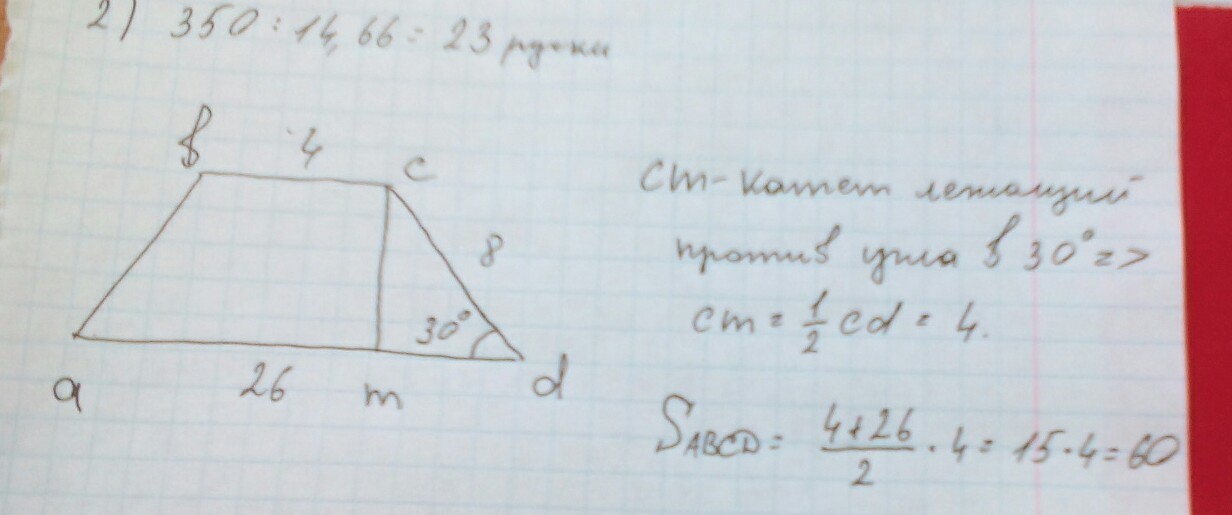 2) 350 : 14,66 = 23 ручки
в 4 с
8
30°
a 26 m d
cm - катет лежащий
против угла в 30° =>
cm = 1/2 cd = 4.
SABCD = 4+26/2 · 4 = 15 · 4 = 60